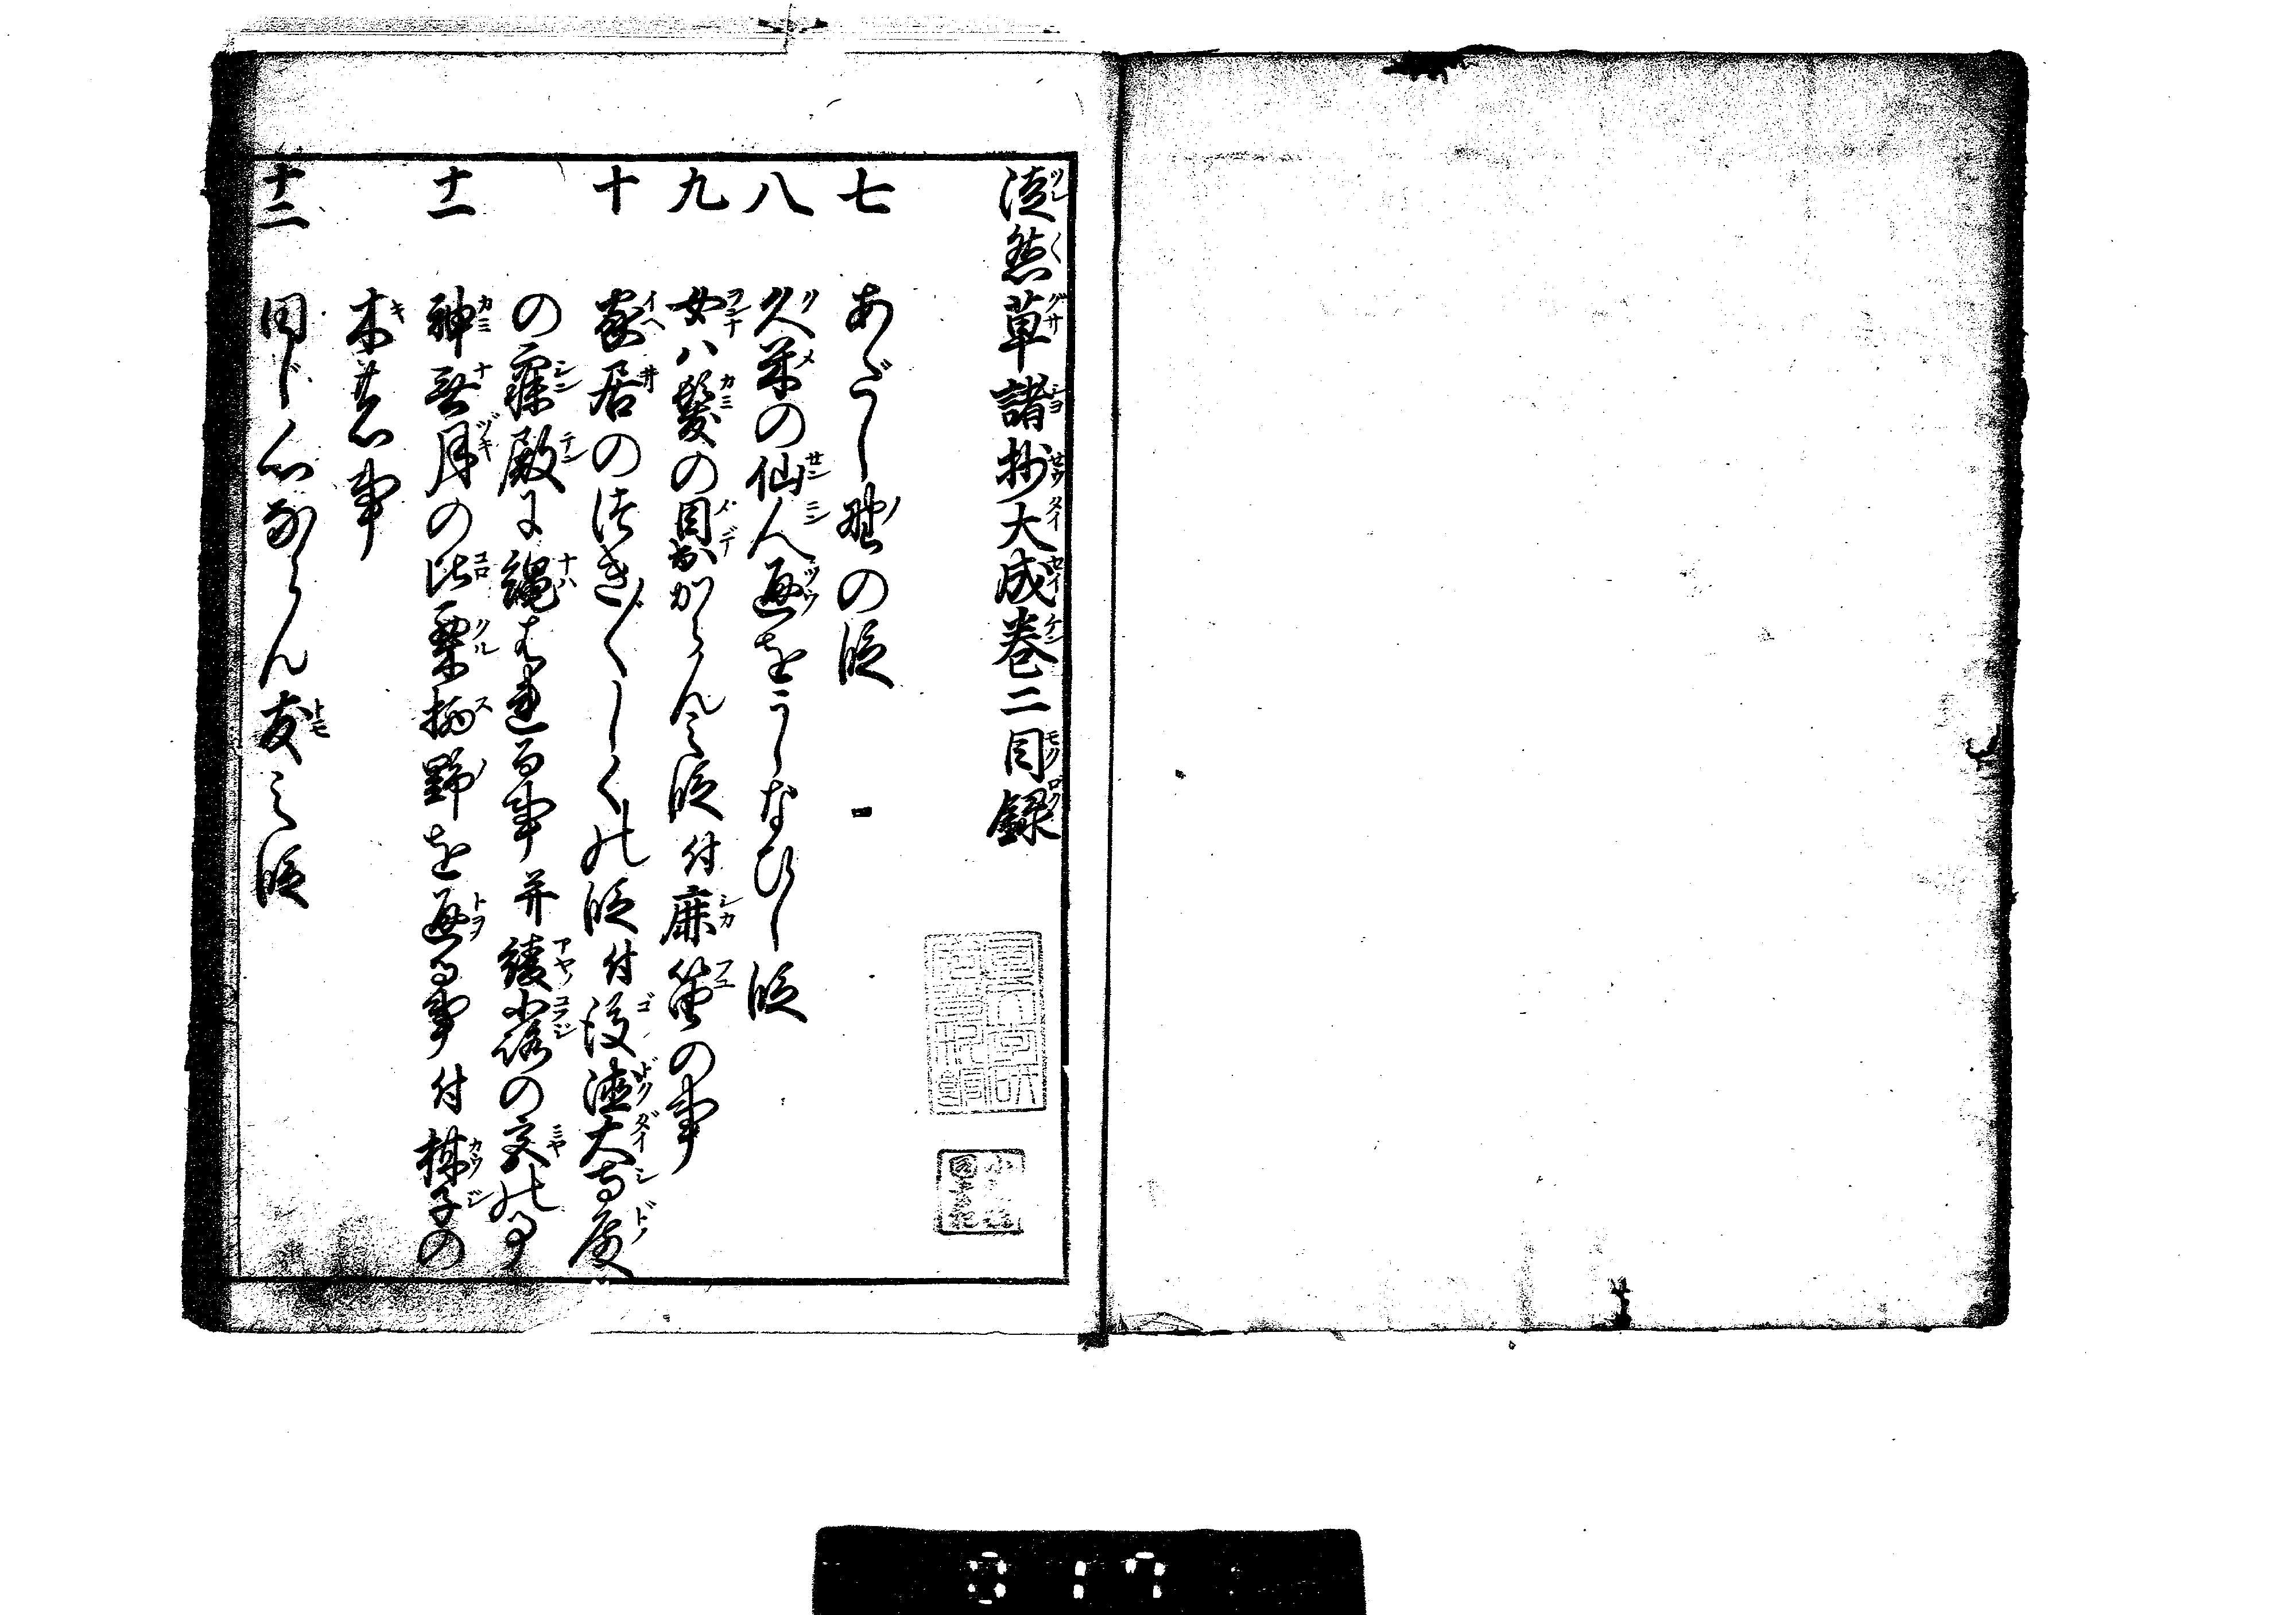 徒然草諸抄大成巻二目録
七 あだし野の段
八 久米の仙人通をうしなひし段
九 女ハ髪の目出からん之段 付 鹿笛の事
十 家居のつき〴〵しくの段 付 後徳大寺殿
の寝殿に縄はれる事 并 綾小路の宮の事
十一 神無月の比栗栖野を通る事 付 柑子の
木若事
十二 同じ心ならん友之段